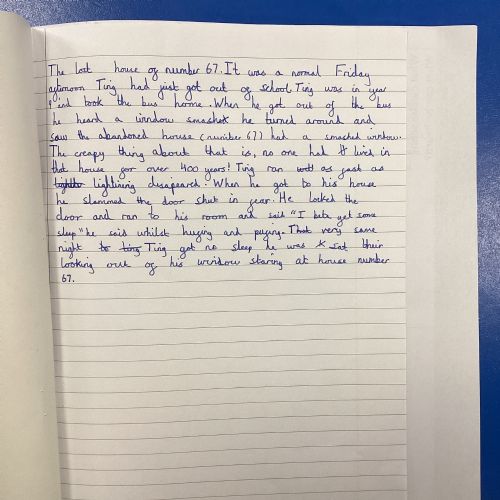 The lost house of number 67. It was a normal Friday
afternoon Ting had just got out of school. Ting was in year
and took the bus home. When he got out of the bus
he heard a window smashed he turned around and
saw the abandoned house (number 67) had a smashed window.
The creapy thing about that is, no one had lived in
that house for over 400 years! Ting ran as fast as
lightining disapeard. When he got to his house
he slammed the door shut in fear. He locked the
door and ran to his room and said "I beta get some
sleep" he said whilst huffing and puffing. That very same
night Ting got no sleep he was sat their
looking out of his window staring at house number
67.